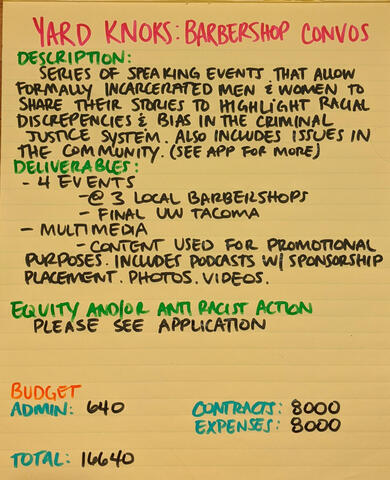 YARD KNOKS: BARBERSHOP CONVOS
DESCRIPTION:
SERIES OF SPEAKING EVENTS THAT ALLOW
FORMALLY INCARCERATED MEN & WOMEN TO
SHARE THEIR STORIES TO HIGHLIGHT RACIAL
DISCREPENCIES & BIAS IN THE CRIMINAL
JUSTICE SYSTEM. ALSO INCLUDES ISSUES IN
THE COMMUNITY. (SEE APP FOR MORE)
DELIVERABLES:
- 4 EVENTS
-@ 3 LOCAL BARBERSHOPS
- FINAL UW TACOMA
- MULTIMEDIA
- CONTENT USED FOR PROMOTIONAL
PURPOSES. INCLUDES PODCASTS W/ SPONSORSHIP
PLACEMENT. PHOTOS. VIDEOS.
EQUITY AND/OR ANTI RACIST ACTION
PLEASE SEE APPLICATION
BUDGET
ADMIN: 640 CONTRACTS: 8000
EXPENSES: 8000
TOTAL: 16640